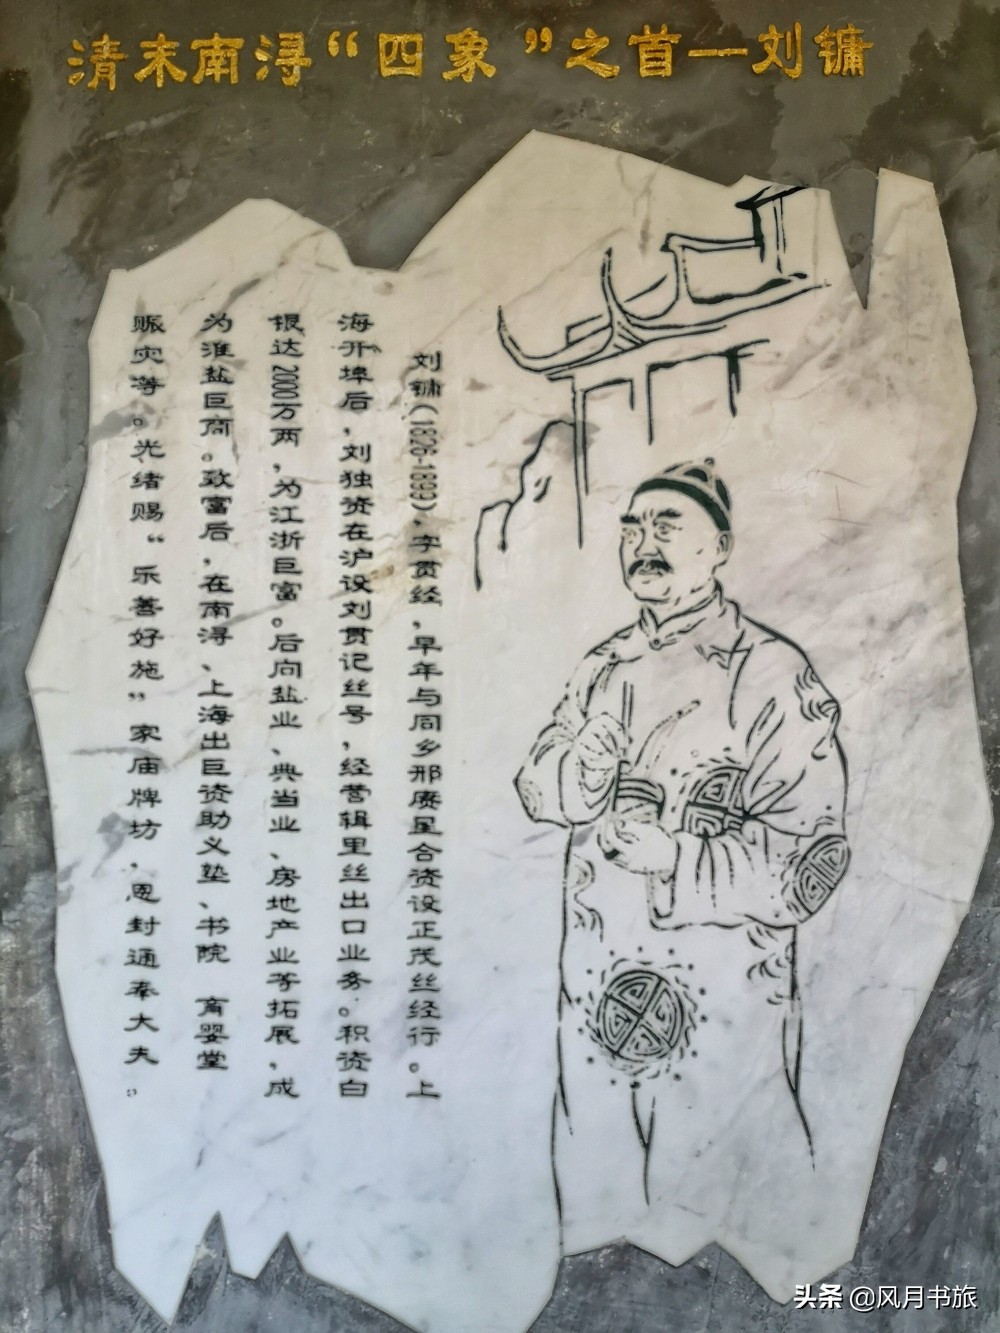 清末南浔“四象”之首—刘镛
刘镛(1826-1899)，字贯经，早年与同乡邢赓星合资设正茂丝经行。上
海开埠后，刘独资在沪设刘贯记丝号，经营辑里丝出口业务。积资白
银达2000万两，为江浙巨富。后向盐业、典当业、房地产业等拓展，成
为淮盐巨商。致富后，在南浔、上海出巨资助义塾、书院 育婴堂
赈灾等。光绪赐“乐善好施”家庙牌坊，恩封通奉大夫。
头条 @风月书旅